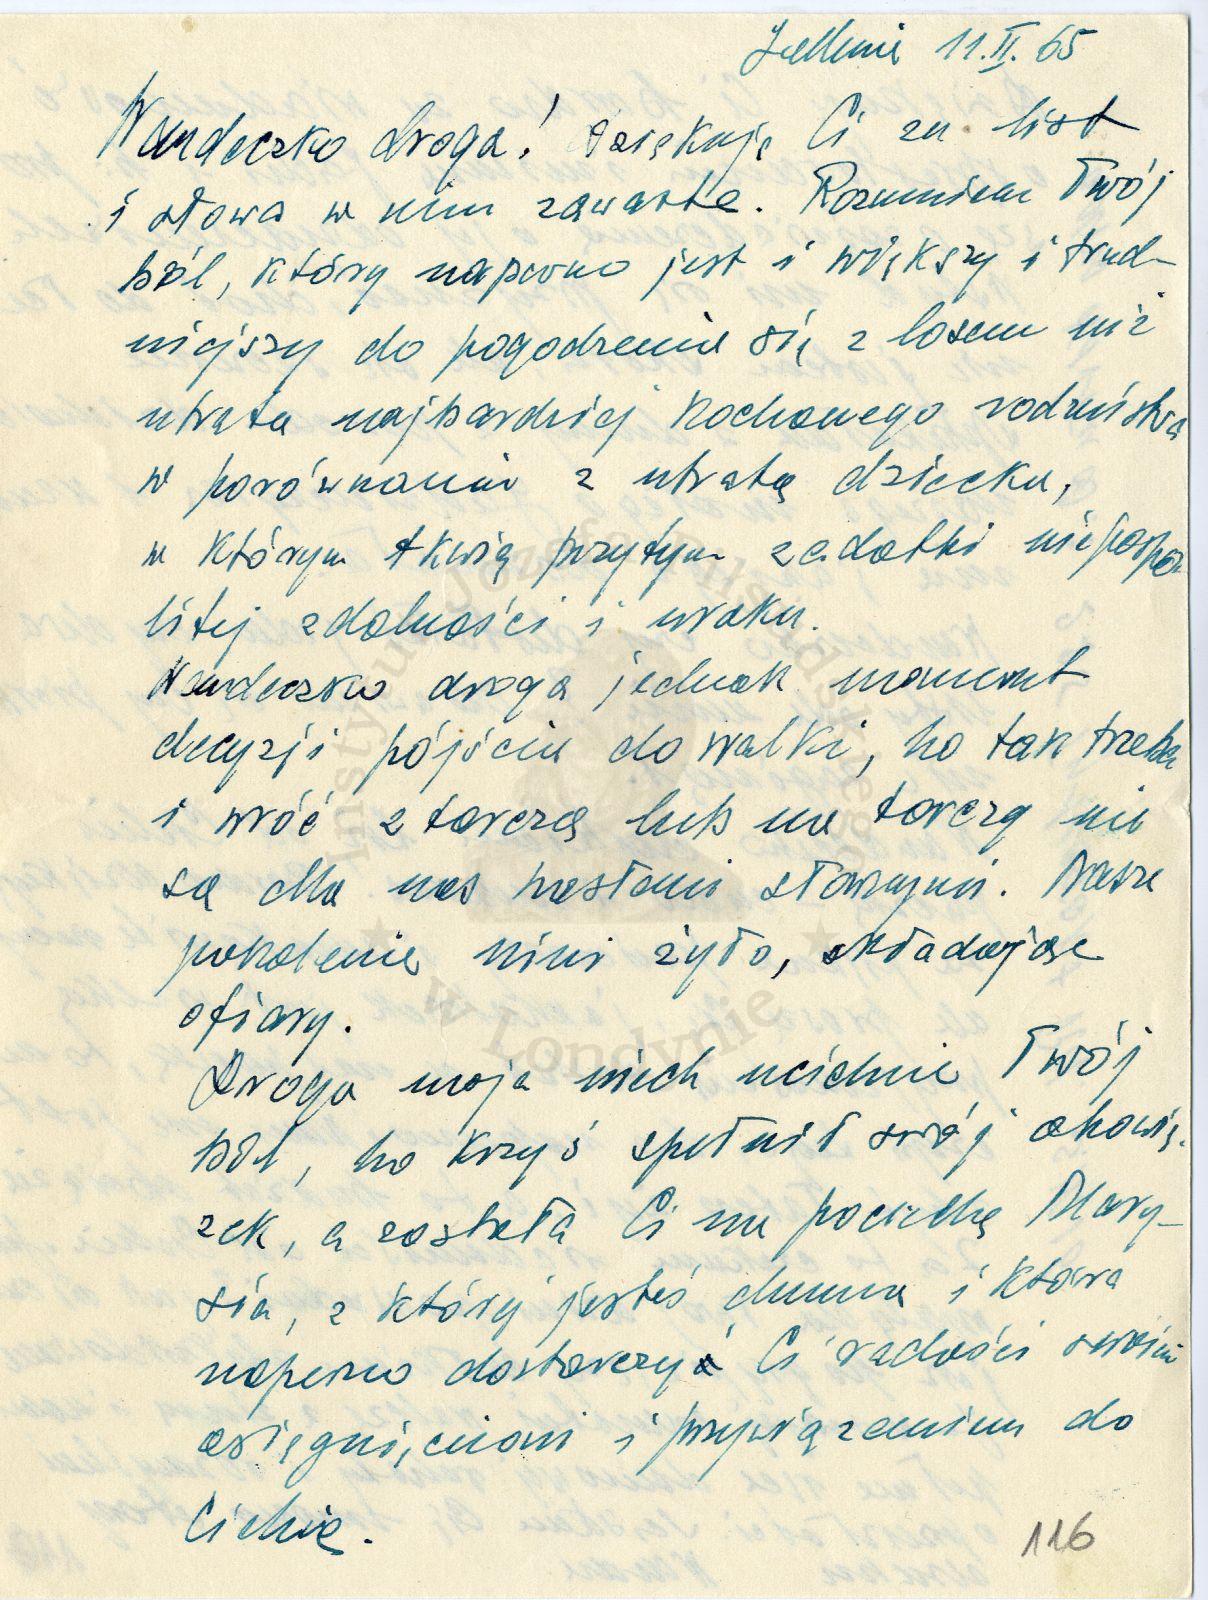 11.II.65
Wandeczko droga! Dziękuję Ci za list
i słowa w nim zawarte. Rozumiem Twój
ból, który napewno jest i większy i trud-
niejszy do pogodzenia się z losem niż
utrata najbardziej kochanego rodzeństwa
w porównaniu z utratą dziecka,
w którym tkwią przytym zadatki niepospo-
litej zdolności i uroku.
Wandeczko droga jednak moment
decyzji pójścia do walki, bo tak trzeba
i wróć z tarczą lub na tarczy nie
są dla nas pustemi słowami. Nasze
pokolenie nimi żyło, składając
ofiary.
Droga moja niech ucichnie Twój
ból, bo Krzyś spełnił swój obowią-
zek, a została Ci na pociechę Mary-
sia, z której jesteś dumna i która
napewno dostarczy Ci radości swoimi
osiągnięciami i przywiązaniem do
Ciebie.
116
Instytut Józefa Piłsudskiego
w Londynie